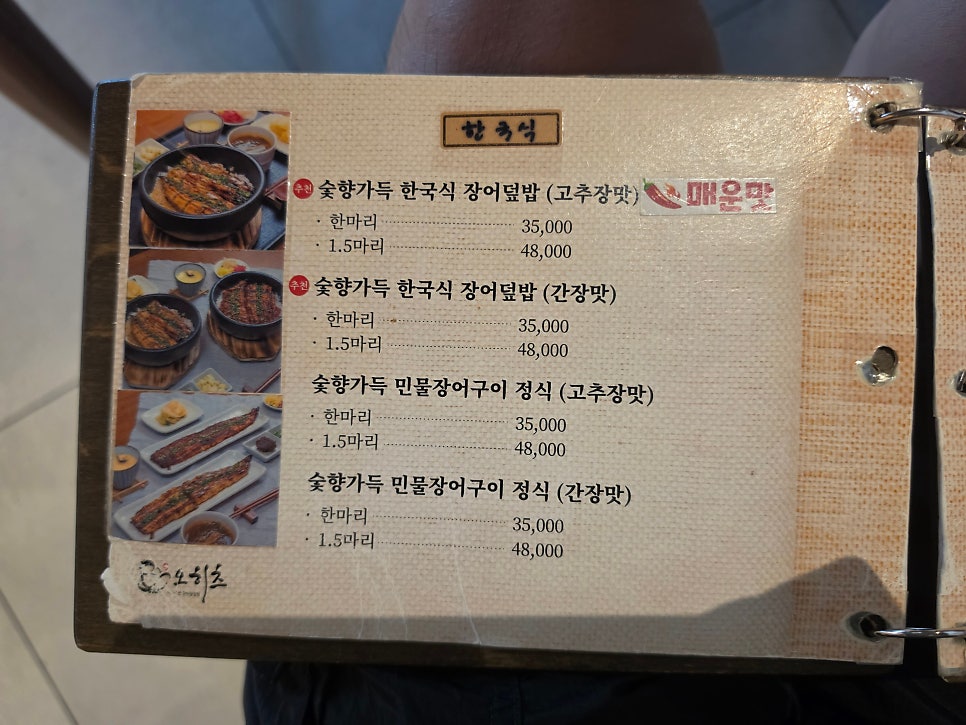 한국식
추천 숯향가득 한국식 장어덮밥 (고추장맛) 매운맛
· 한마리 35,000
· 1.5마리 48,000
추천 숯향가득 한국식 장어덮밥 (간장맛)
· 한마리 35,000
· 1.5마리 48,000
숯향가득 민물장어구이 정식 (고추장맛)
· 한마리 35,000
· 1.5마리 48,000
숯향가득 민물장어구이 정식 (간장맛)
· 한마리 35,000
· 1.5마리 48,000
오히츠